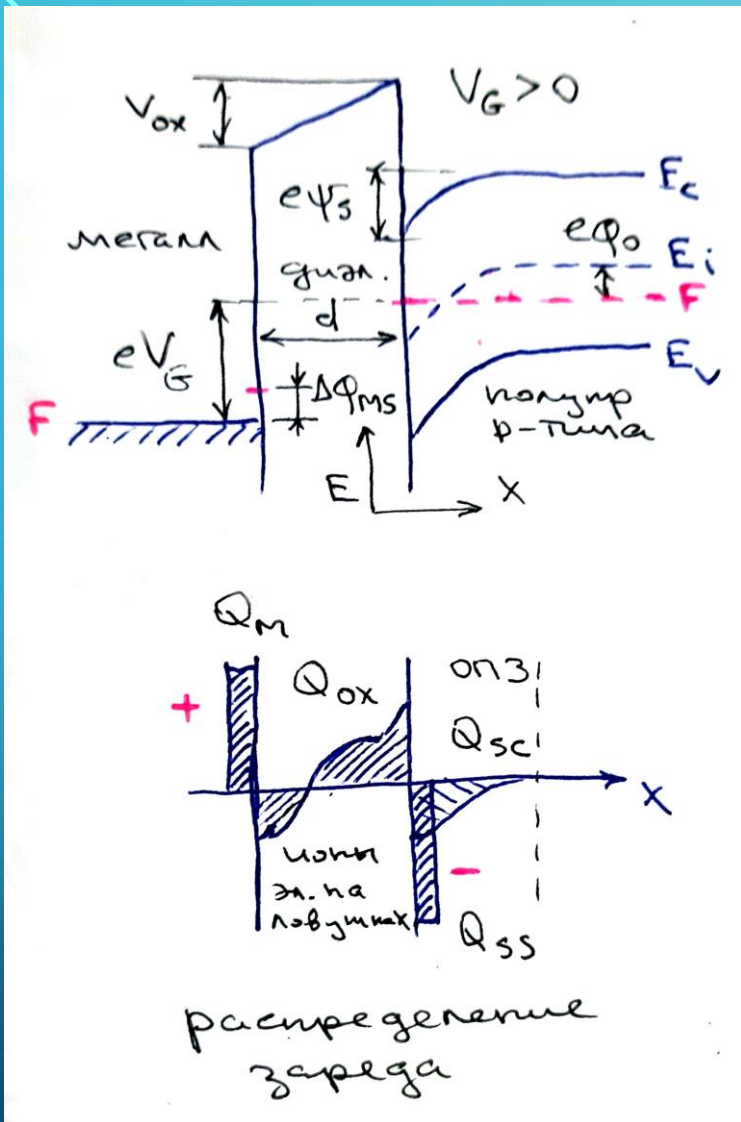 V_ox
V_G > 0
eψ_s
E_c
металл
eφ_0
E_i
диэл.
F
d
eV_G
E_v
Δφ_MS
полупр
p-типа
F
E
x
Q_M
Q_ox
ОПЗ
+
Q_sc
x
ионы
эл. на
ловушках
-
Q_ss
распределение
заряда